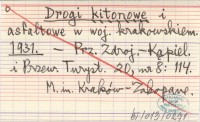 Drogi kitonowe i
asfaltowe w woj. krakowskiem.
1931. – Prz. Zdroj.-Kąpiel.
i Przew. Turyst. 20, nr 8: 114.
M. in. Kraków – Zakopane.